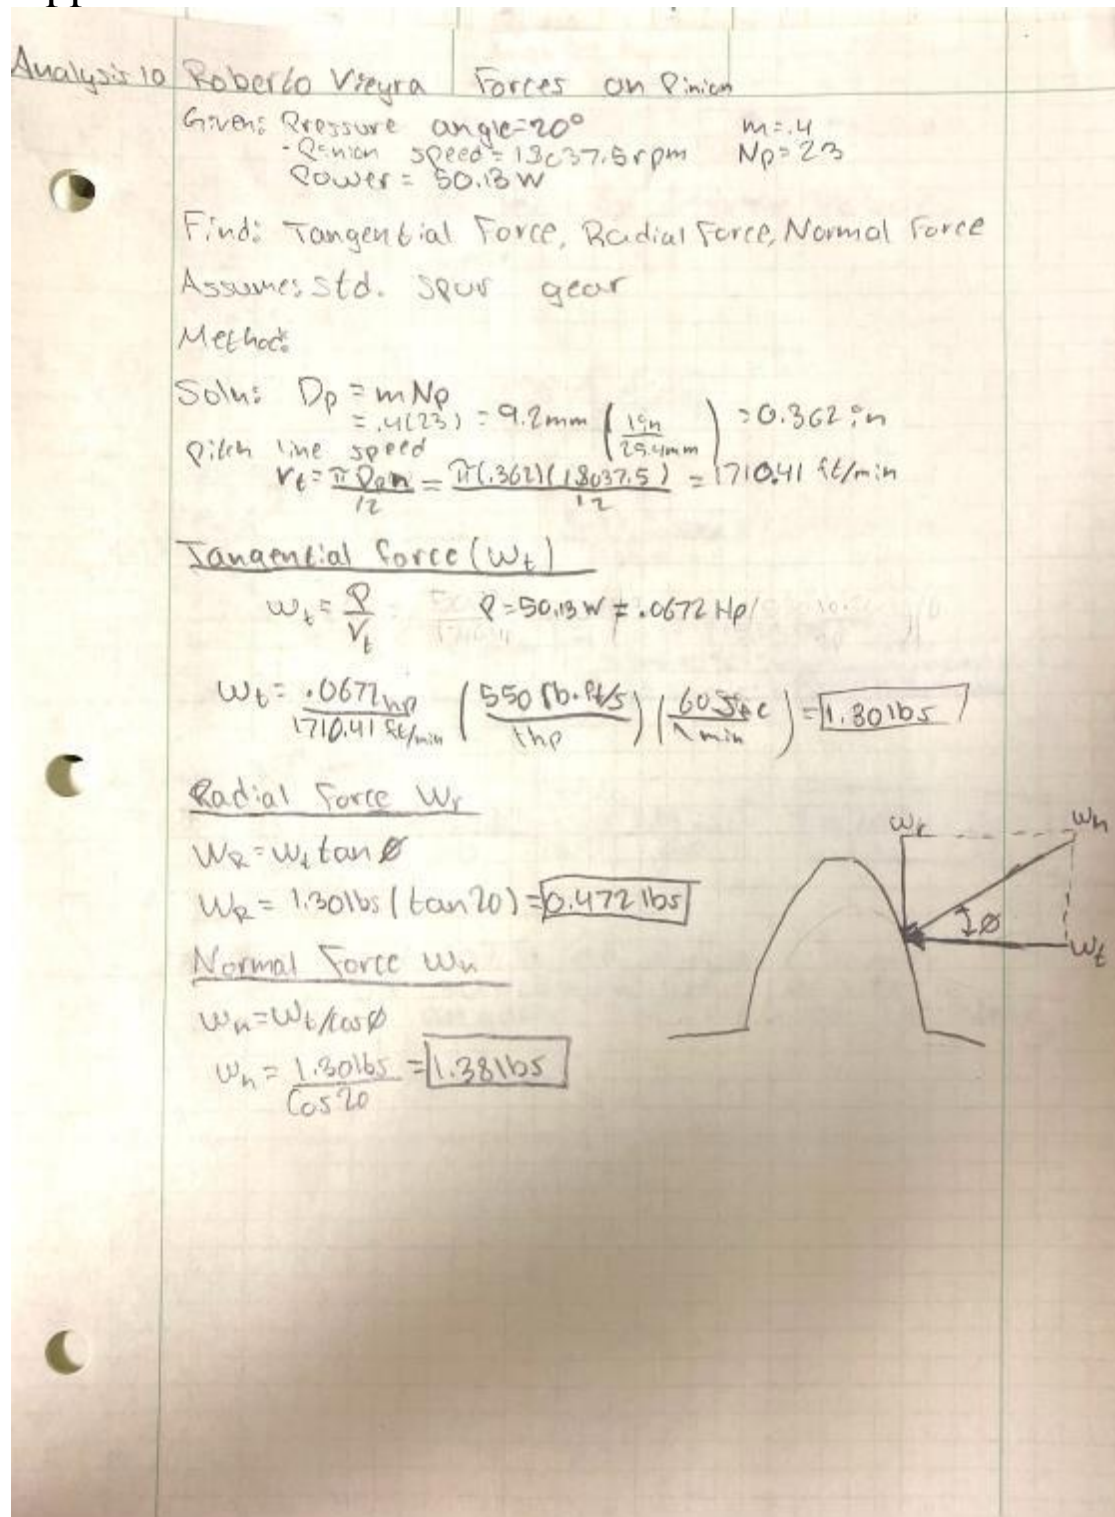 Analysis 10 Roberto Vieyra Forces on Pinion
Given: Pressure angle=20° m=.4
-Pinion speed= 18037.5rpm Np=23
Power = 50.13 W
Find: Tangential Force, Radial Force, Normal Force
Assume: Std. spur gear
Method:
Soln: Dp = mNp
= .4(23) = 9.2mm (1in/25.4mm) = 0.362 in
pitch line speed
Vt = πDpn/12 = π(.362)(18037.5)/12 = 1710.41 ft/min
Tangential force (Wt)
Wt = P/Vt P=50.13W = .0672 Hp
Wt = .0672hp/1710.41 ft/min (550 lb·ft/s/1hp) (60 Sec/1 min) = 1.30lbs
Radial Force Wr
WR = Wt tan Ø
WR = 1.30lbs (tan20) = 0.472 lbs
Normal Force Wn
Wn=Wt/cosØ
Wn = 1.30lbs/Cos20 = 1.38lbs
Wr Wn
Ø
Wt